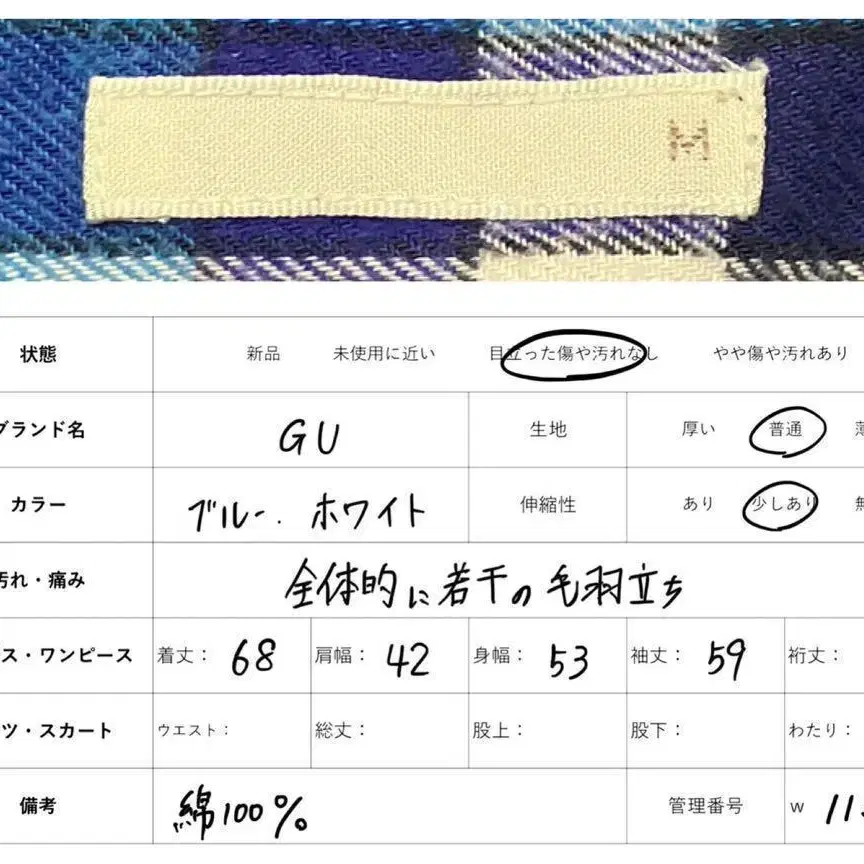 M
状態 新品 未使用に近い 目立った傷や汚れなし やや傷や汚れあり
ブランド名 GU 生地 厚い 普通 薄
カラー ブルー. ホワイト 伸縮性 あり 少しあり 無
汚れ・痛み 全体的に若干の毛羽立ち
ス・ワンピース 着丈: 68 肩幅: 42 身幅: 53 袖丈: 59 裄丈:
ツ・スカート ウエスト: 総丈: 股上: 股下: わたり:
備考 綿100% 管理番号 w 11